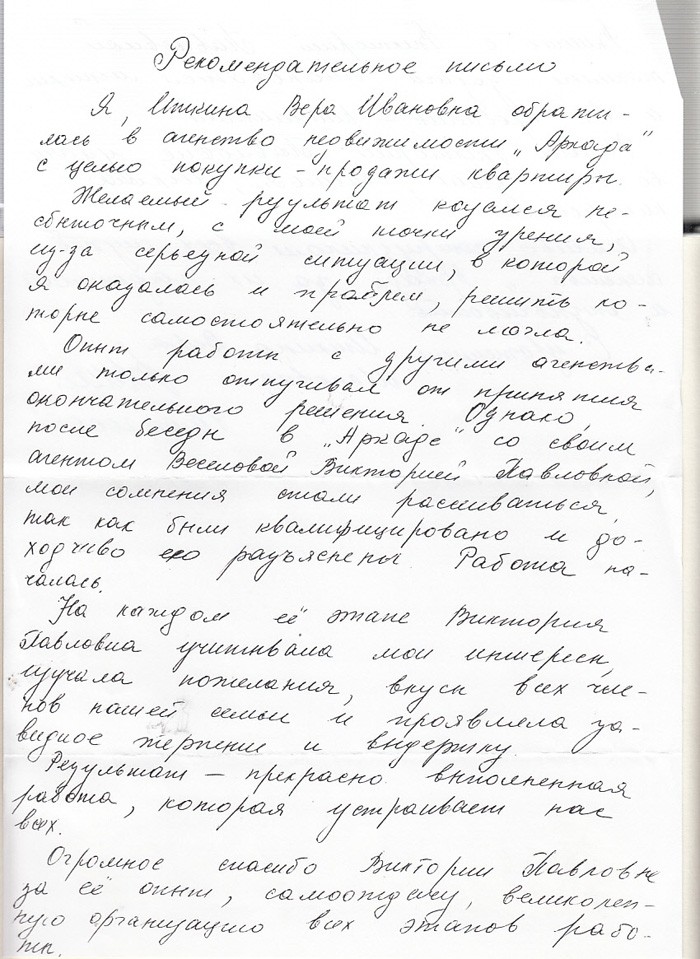 Рекомендательное письмо
Я, Иткина Вера Ивановна обрати-
лась в агенство недвижимости „Аркада"
с целью покупки - продажи квартиры.
Желаемый результат казался не-
сбыточным, с моей точки зрения,
из-за серьезной ситуации, в которой
я оказалась и проблем, решить ко-
торые самостоятельно не могла.
Опыт работы с другими агенства-
ми только отпугивал от принятия
окончательного решения. Однако,
после беседы в „Аркаде" со своим
агентом Веселовой Викторией Павловной,
мои сомнения стали рассеиваться,
так как были квалифицировано и до-
ходчиво разъяснены. Работа на-
чалась.
На каждом её этапе Виктория
Павловна учитывала мои интересы,
изучала пожелания, вкусы всех чле-
нов нашей семьи и проявляла за-
видное терпение и выдержку.
Результат — прекрасно выполненная
работа, которая устраивает нас
всех.
Огромное спасибо Виктории Павловне
за её опыт, самоотдачу, великолеп-
ную организацию всех этапов рабо-
ты.